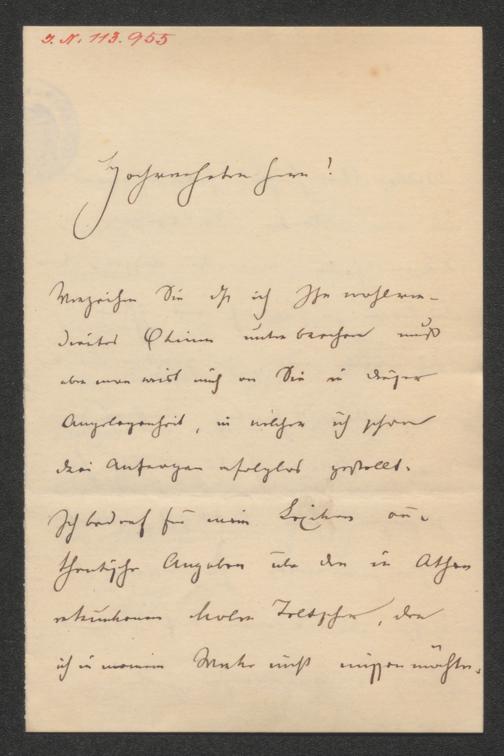 I. N. 113.955
Hochverehrter Herr!
Verzeihen Sie daß ich Ihr wohlver-
dientes Otium unterbrechen muß
aber man weist mich an Sie in dieser
Angelegenheit, in welcher ich schon
drei Anfragen erfolglos gestellt.
Ich bedarf für mein Lexikon au-
thentische Angaben über den in Athen
Maler, den
ich in meinem Werke nicht missen möchte.